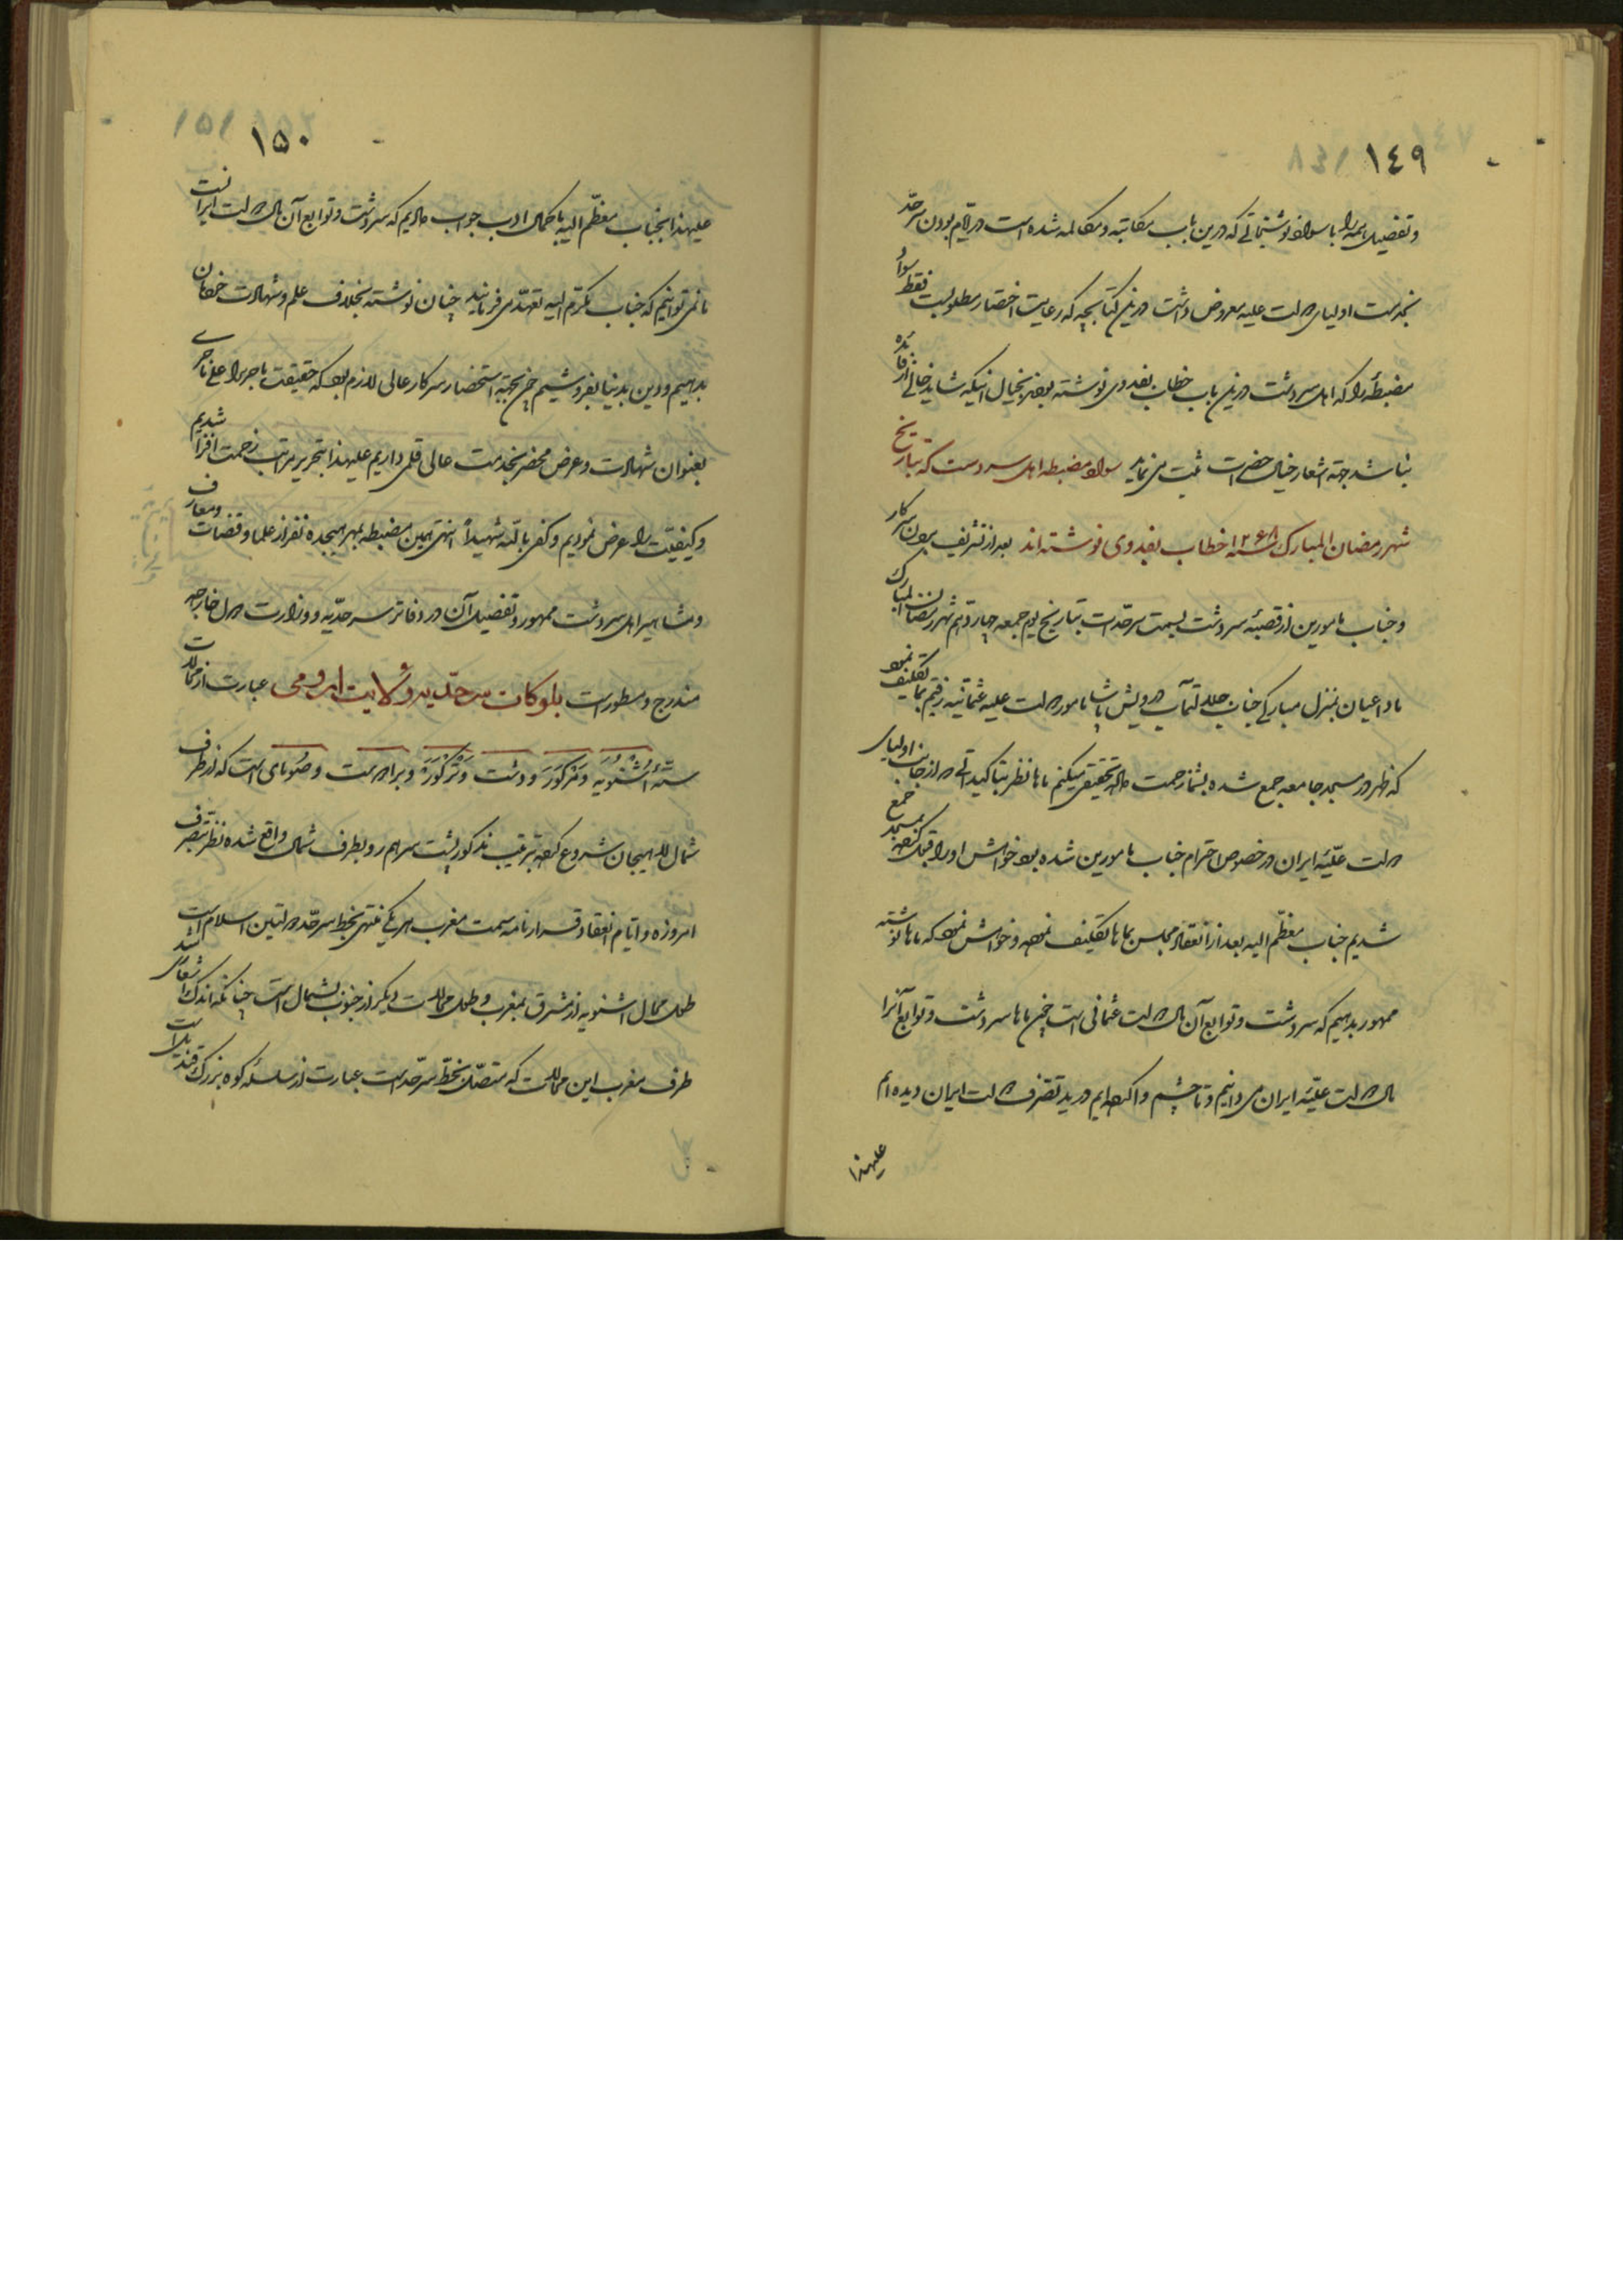 ١٤٩
و تفصیل همه را با سواد نوشتجاتی که درین باب مکاتبه و مکالمه شده است در ایام بودن سرحد
بخدمت اولیای دولت علیه معروض داشت درین کتابچه که رعایت اختصار مطلوبست فقط سواد
مضبطهٔ را که اهل سردشت درین باب خطاب بفدوی نوشته بودند بخیال اینکه شاید خالی از فائده
نباشد جهة اشعار خیال حضرات ثبت می نماید سواد مضبطه اهل سردست که بتاریخ
شهر رمضان المبارک سنه ۱۲۶۸ خطاب بفدوی نوشته اند بعد از تشریف بردن سرکار
و جناب مامورین از قصبهٔ سردشت بسمت سرحدات بتاریخ یوم جمعه چهاردهم شهر رمضان المبارک
ما داعیان بمنزل مبارکی جناب جلالتمآب درویش پاشا مامور دولت علیه عثمانیه رفتیم بما تکلیف نمود
که ظهر در مسجد جامعه جمع شده بشما زحمت داده تحقیق میکنم ماها نظر بتاکیداتی که از جانب اولیای
دولت علیّهٔ ایران در خصوص احترام جناب مامورین شده بود خواهش او را قبول کرده بمسجد جمع
شدیم جناب معظّم الیه بعد از انعقاد مجلس بماها تکلیف نموده و خواهش نمود که ماها نوشته
ممهور بدهیم که سردشت و توابع آن مال دولت عثمانی است چون ماها سردشت و توابع آنرا
مال دولت علیّهٔ ایران می دانیم و تا چشم وا کرده ایم در ید تصرف دولت ایران دیده ایم
علیهذا
١٥٠
علیهذا بجناب معظّم الیه با کمال ادب جواب دادیم که سردشت و توابع آن مال دولت ایرانست
ما نمی توانیم که جناب مکرّم الیه تعهّد می فرمایند چنان نوشته بخلاف علم و شهادت خودمان
بدهیم و دین بدنیا بفروشیم چون بجهة استحضار سرکار عالی لازم بود که حقیقت ماجرا را علی ماجری
بعنوان شهادت و عرض محضر بخدمت عالی قلمی داریم علیهذا بتحریر مراتب زحمت افزا شدیم
و کیفیّت را عرض نمودیم و کفی بالله شهیداً انتهی همین مضبطه بمهر هیجده نفر از علما و قضات و معارف
و مشاهیر اهل سردشت ممهور و تفصیل آن در دفاتر سرحدّیه و وزارت دول خارجه
مندرج و مسطور است بلوکات سرحدّیه ولایت ارومی عبارت از محالات
ستّهٔ اشنویه و مرکور و دشت و ترکور و برادست و صومای است که از طرف
شمال لاهیجان شروع کرده بترتیب مذکور پشت سر هم رو بطرف شمال واقع شده نظر بتصرف
امروزه و ایام انعقاد قرارنامه سمت مغرب هر یکی منتهی بخط سرحد دولتین اسلام است
طول محال اشنویه از مشرق بمغرب و طول محالات دیگر از جنوب بشمال است چنانکه اندک اشعاری شد
طرف مغرب این محالات که متصّل بخطّ سرحد است عبارت از سلسله کوه بزرگ